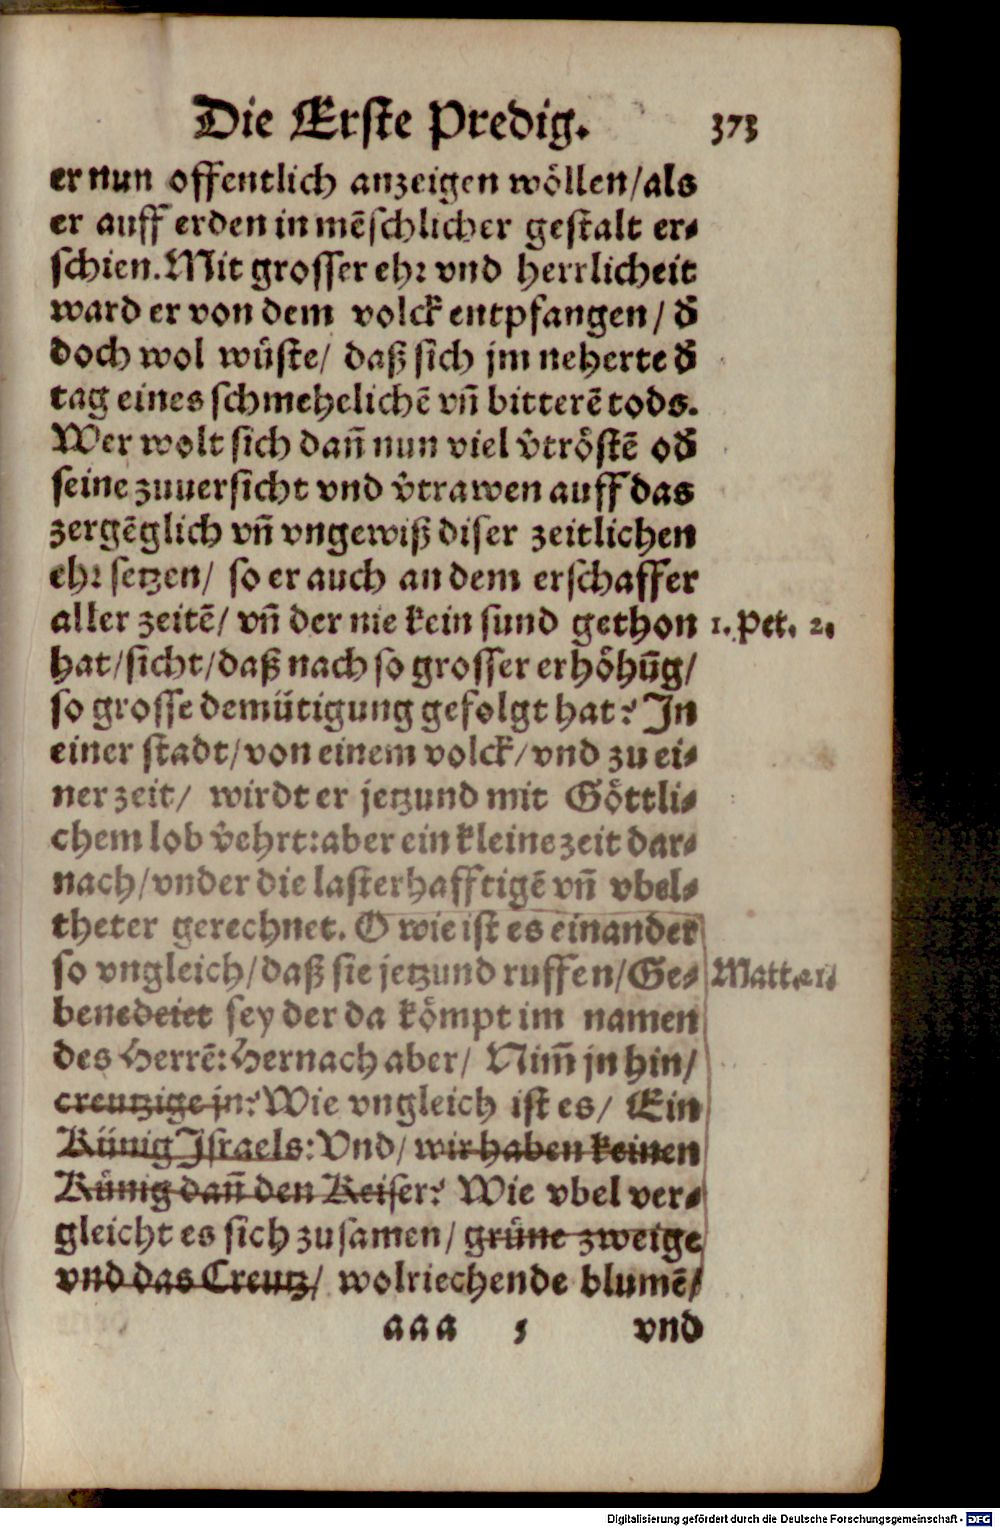 Die Erste Predig. 373
er nun offentlich anzeigen wöllen/als
er auff erden in mēschlicher gestalt er⸗
schien. Mit grosser ehꝛ vnd herrlicheit
ward er von dem volck entpfangen/ d̄
doch wol wůste/ daß sich jm neherte d̄
tag eines schmehelichē vñ bitterē tods.
Wer wolt sich dañ nun viel v̂tröstē od̄
seine zuuersicht vnd v̂trawen auff das
zergēglich vñ vngewiß diser zeitlichen
ehꝛ setzen/ so er auch an dem erschaffer
aller zeitē/ vñ der nie kein sund gethon 1. Pet. 2.
hat/sicht/daß nach so grosser erhöhūg/
so grosse demütigung gefolgt hat? In
einer stadt/von einem volck/vnd zu ei⸗
ner zeit/ wirdt er jetzund mit Göttli⸗
chem lob v̂ehrt: aber ein kleine zeit dar⸗
nach/vnder die lasterhafftigē vñ vbel⸗
theter gerechnet. O wie ist es einander
so vngleich/daß sie jetzund ruffen/Ge⸗ Matt. 21.
benedeiet sey der da kömpt im namen
des Herrē: Hernach aber/ Nim̄ jn hin/
creutzige jn? Wie vngleich ist es/ Ein
Künig Israels: Vnd/ wir haben keinen
Künig dañ den Keiser? Wie vbel ver⸗
gleicht es sich zusamen/ grüne zweige
vnd das Creutz/ wolriechende blumē/
aaa 5 vnd
Digitalisierung gefördert durch die Deutsche Forschungsgemeinschaft - DFG